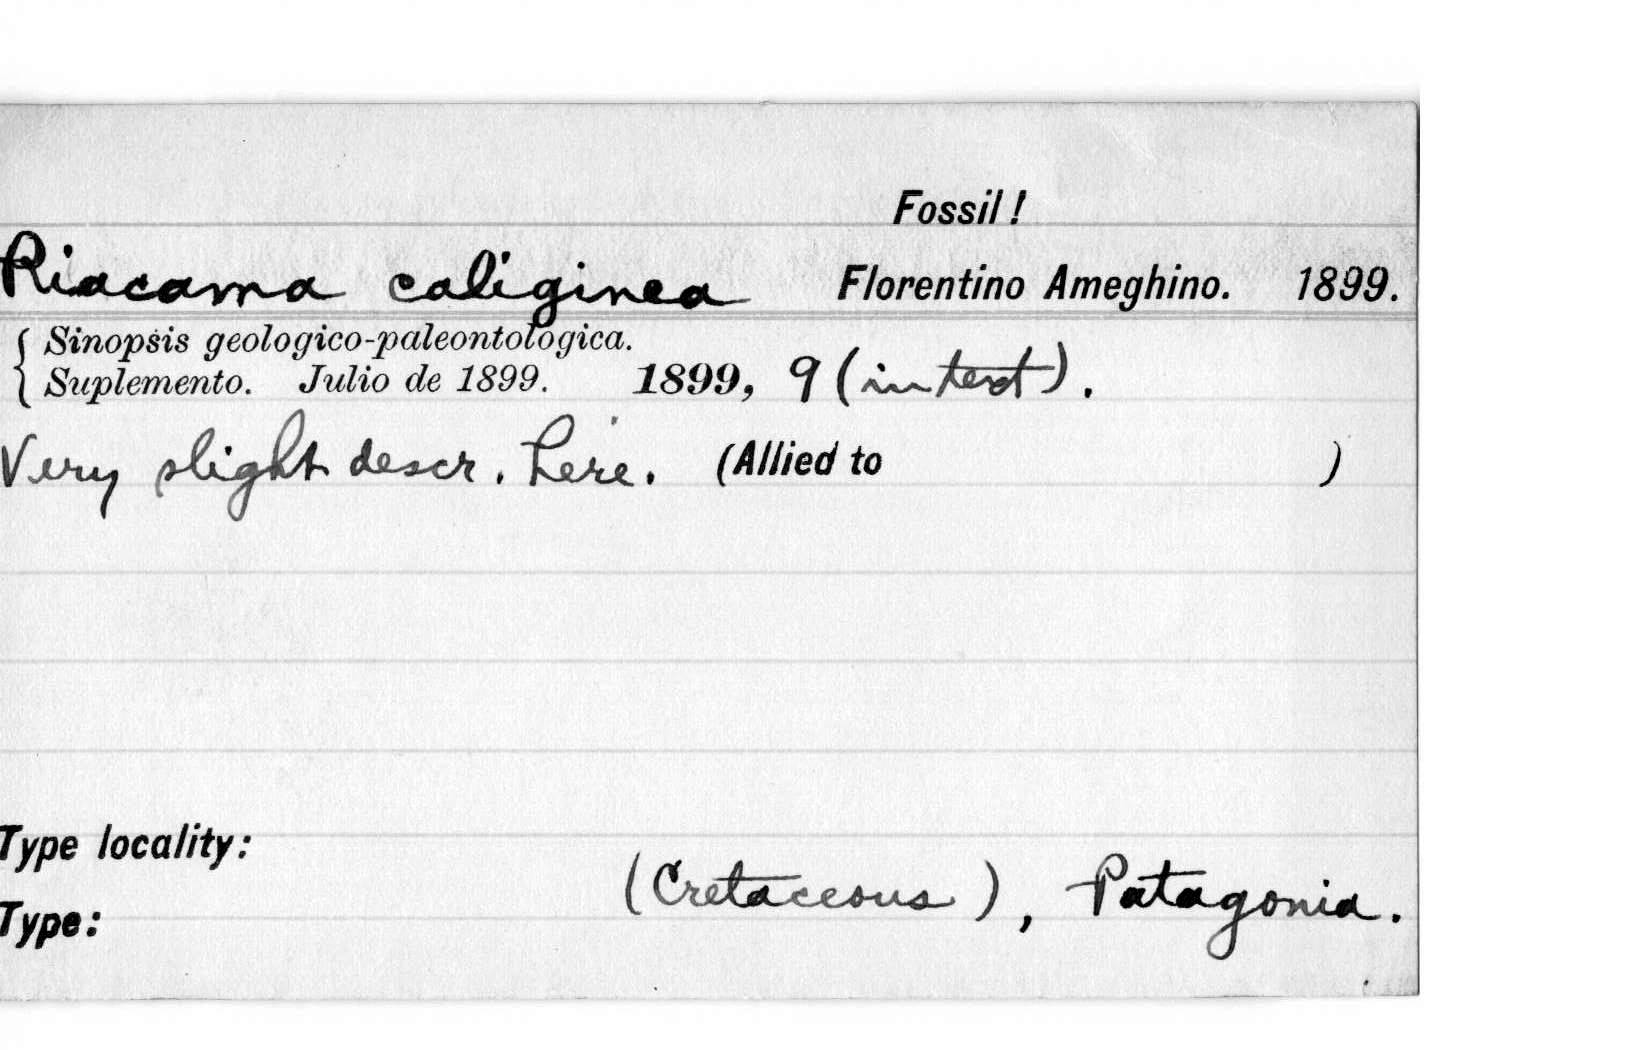 Fossil!
Riacama caliginea Florentino Ameghino. 1899.
{ Sinopsis geologico-paleontologica.
Suplemento. Julio de 1899. 1899, 9 (in text).
Very slight descr. here. (Allied to )
Type locality:
(Cretaceous), Patagonia.
Type: